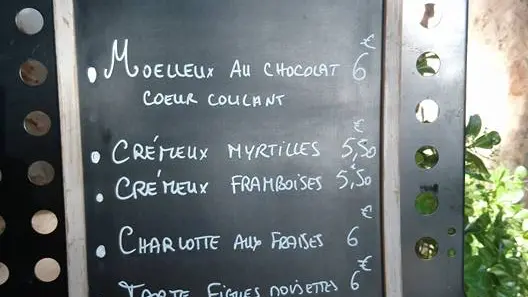 • MOELLEUX AU CHOCOLAT 6 €
COEUR COULANT
• CRÉMEUX MYRTILLES 5,50 €
• CRÉMEUX FRAMBOISES 5,50 €
• CHARLOTTE AUX FRAISES 6 €
TARTE FIGUES NOISETTES 6 €